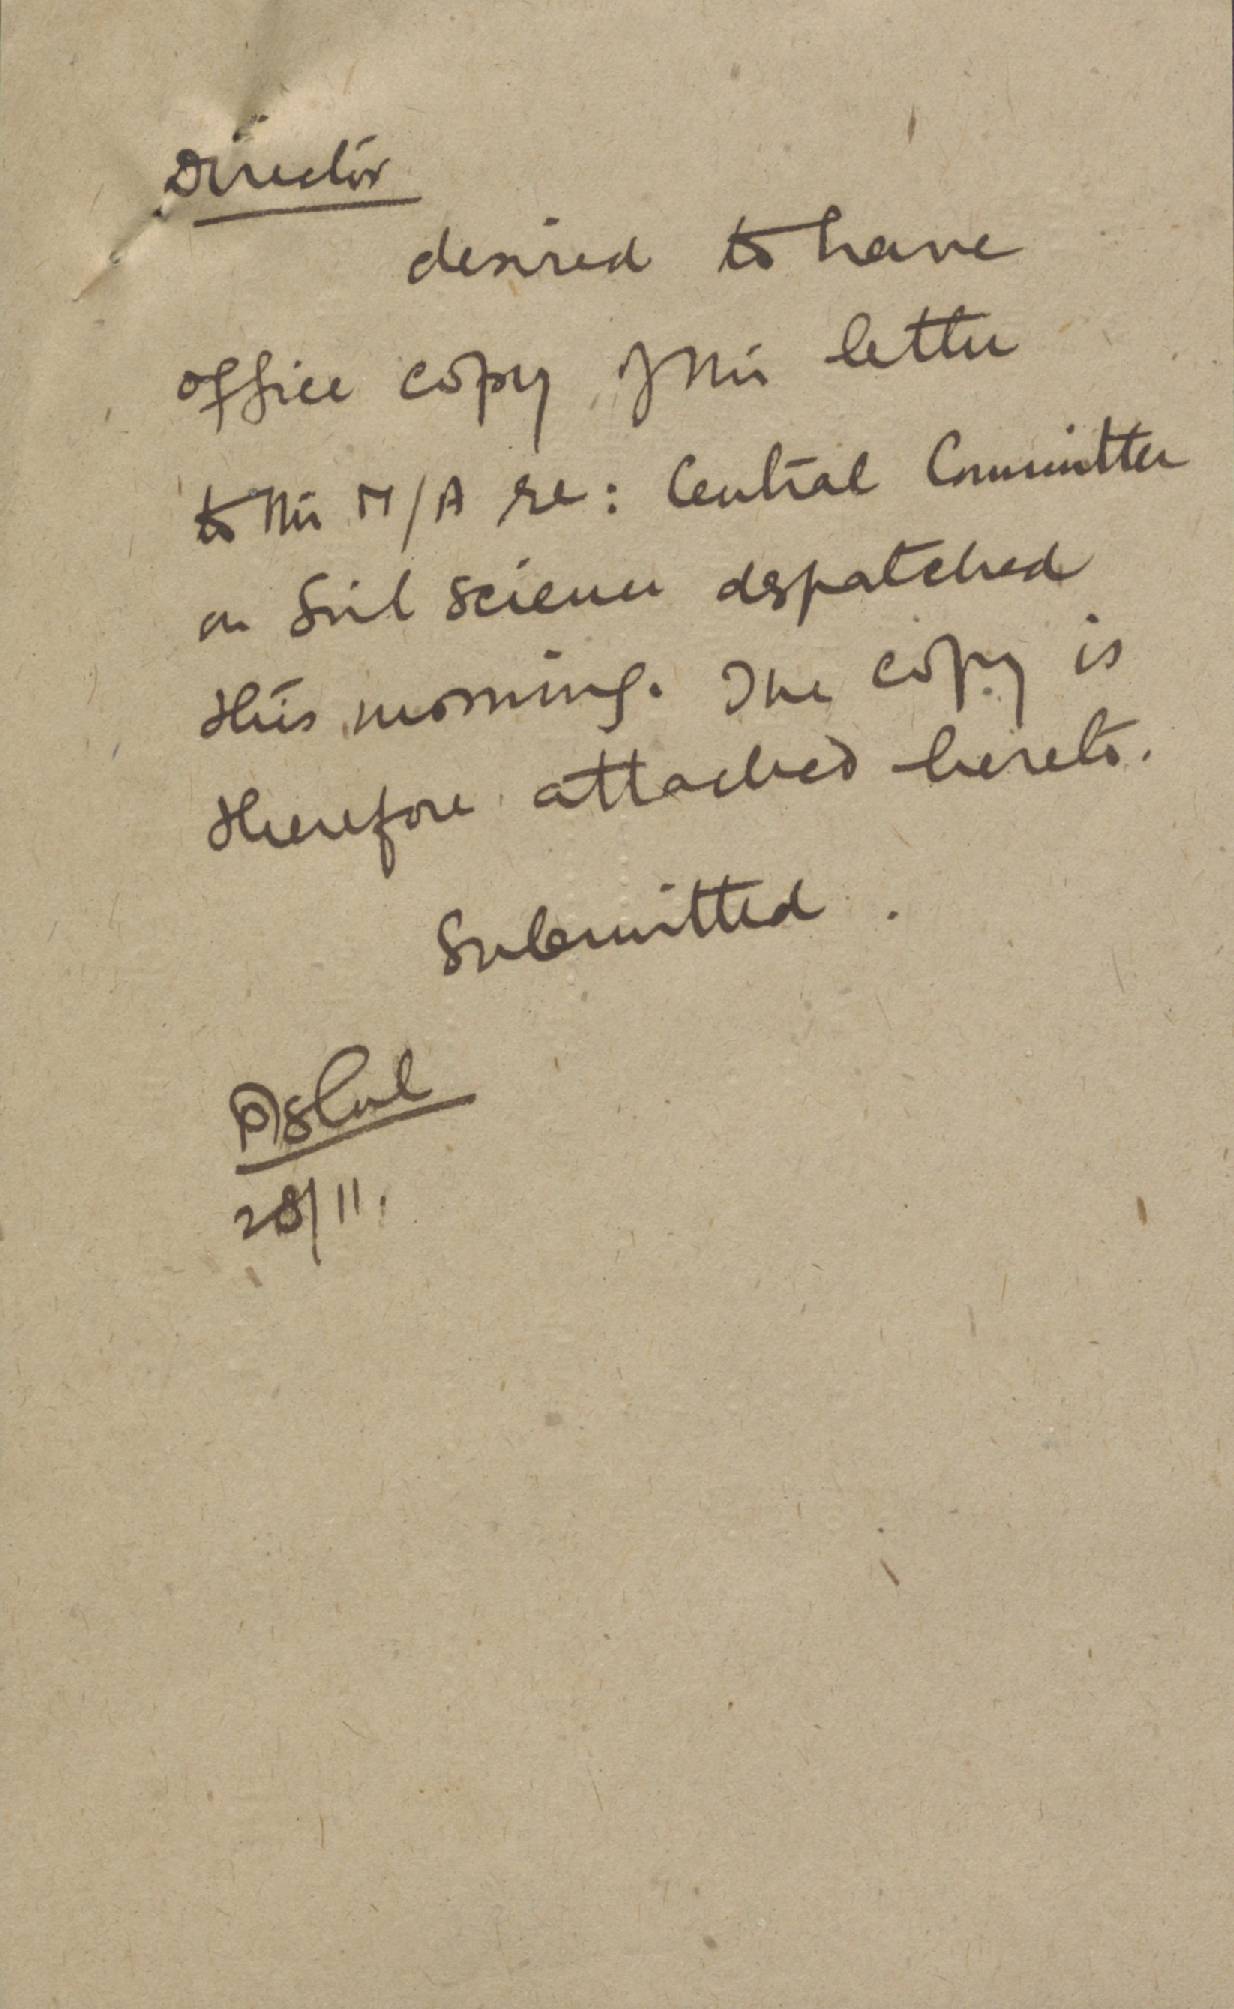 Director
desired to have
office copy of his letter
to the M/A re: Central Committee
on Soil Science despatched
this morning. The copy is
therefore attached hereto.
Submitted.
28/11.